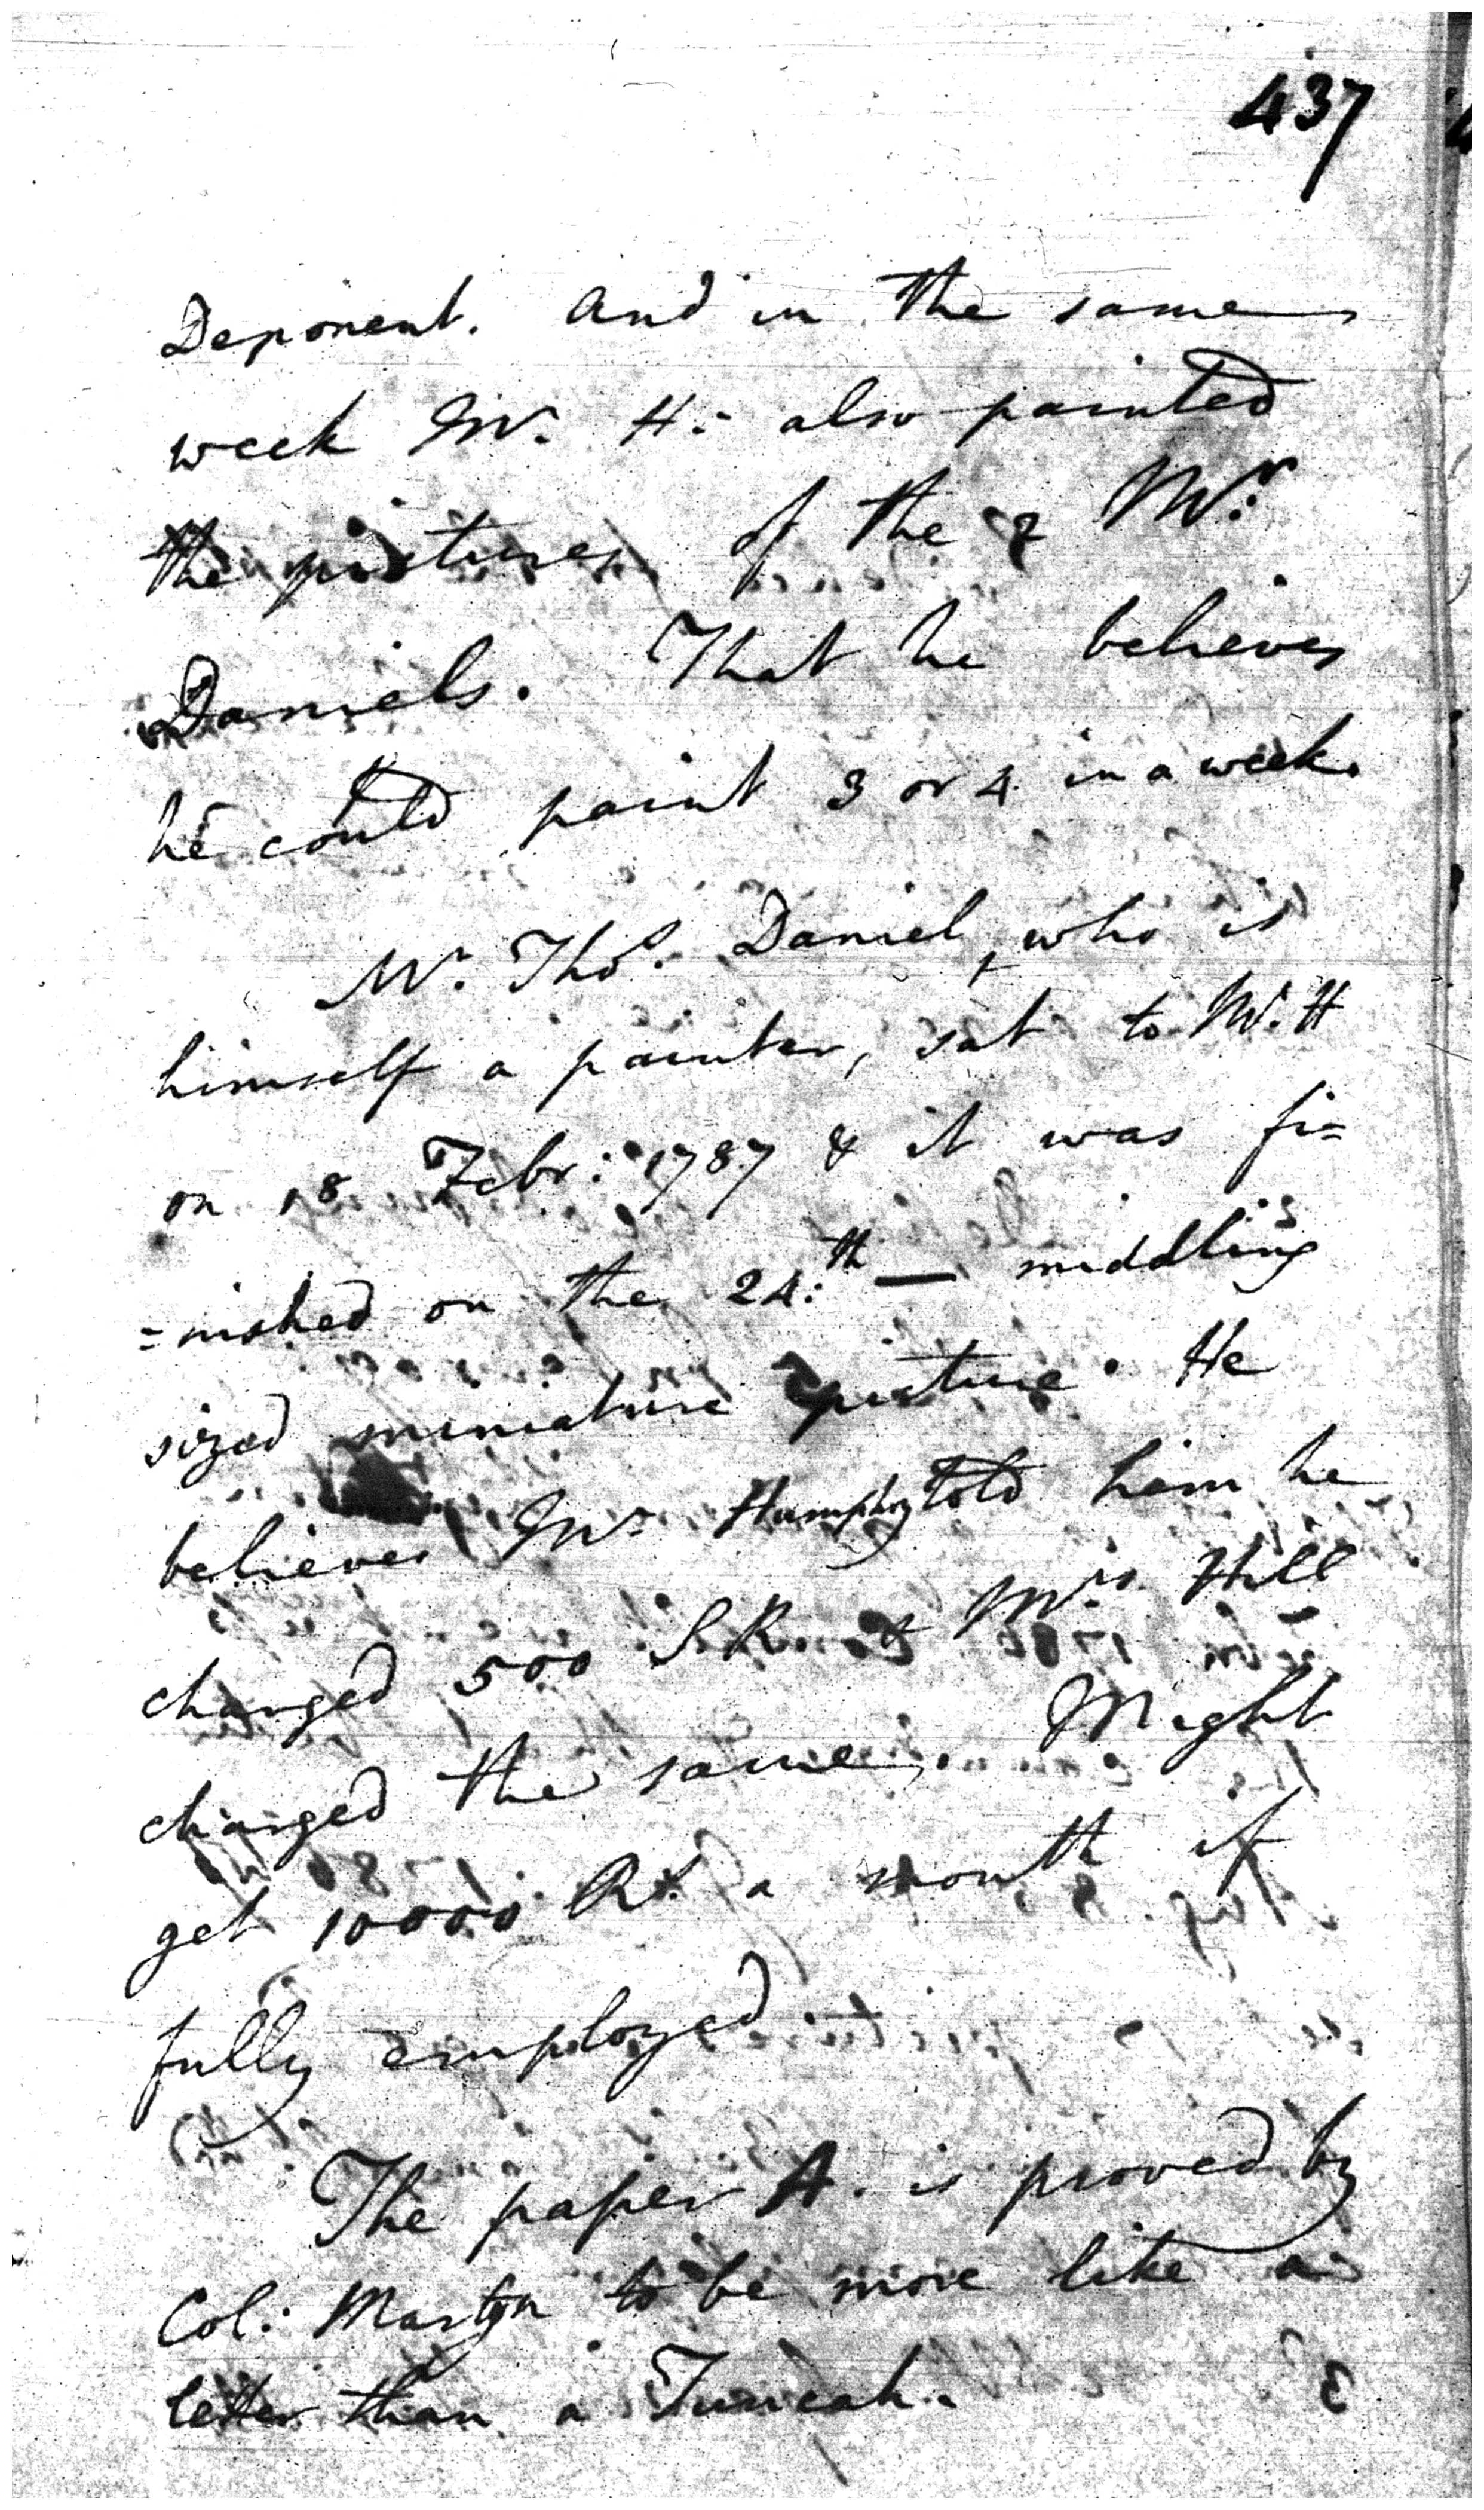 437
Deponent. And in the same
week Mr. H. also painted
the pictures of the 2 Mr.
Daniels. That he believes
he could paint 3 or 4 in a week.
Mr. Thos. Daniel, who is
himself a painter, sat to Mr. H
on 18 Febr: 1787 & it was fi=
=nished on the 24:th — middling
sized miniature picture. He
believes Mr. Humphry told him he
charged 500 S.R. & Mrs. Hill
charged the same. Might
get 10000 Rs. a month if
fully employed
The paper A. is proved by
Col: Martyn to be more like a
letter than a